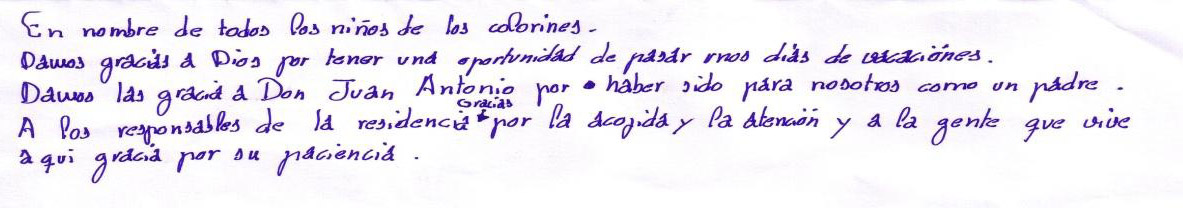 En nombre de todos los niños de los colorines.
Damos gracias a Dios por tener una oportunidad de pasar unos días de vacaciones.
Damos las gracia a Don Juan Antonio por haber sido para nosotros como un padre.
A los responsables de la residencia gracias por la acogida y la atención y a la gente que vive
aqui gracia por su paciencia.